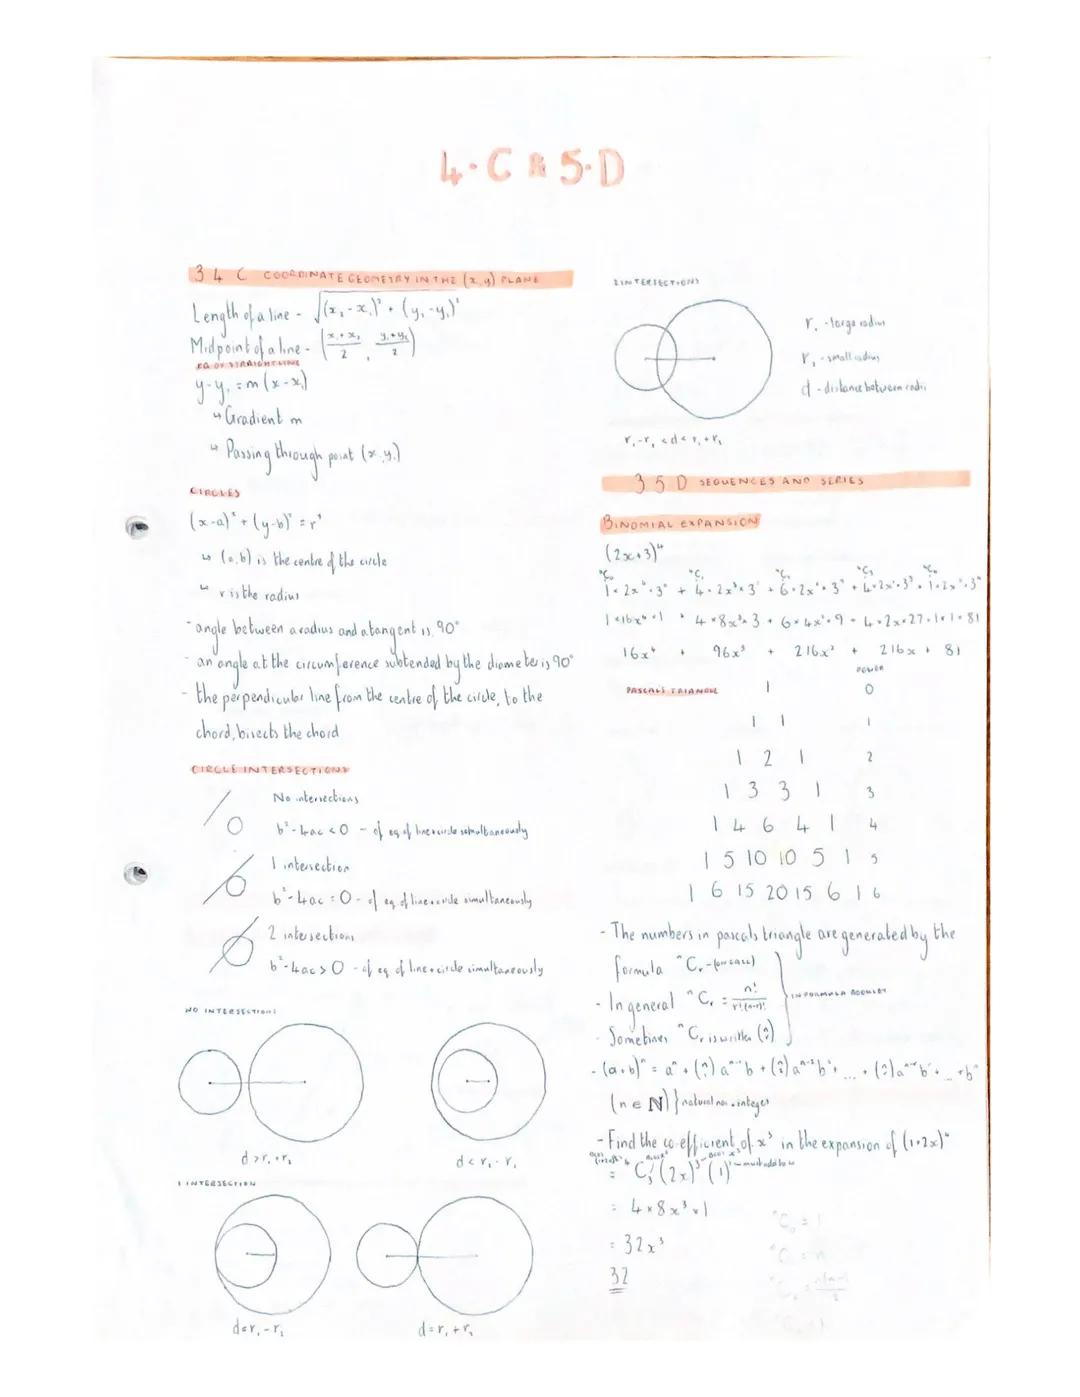 4·C & 5·D
3 4 C COORDINATE GEOMETRY IN THE (x,y) PLANE
Length of a line - √(x₂-x₁)² + (y₂-y₁)²
Midpoint of a line - (x₁+x₂/2, y₁+y₂/2)
EQ OF STRAIGHT LINE
y-y₁ = m(x-x₁)
↳ Gradient m
↳ Passing through point (x₁,y₁)
CIRCLES
(x-a)² + (y-b)² = r²
↳ (a,b) is the centre of the circle
↳ r is the radius
- angle between a radius and a tangent is 90°
- an angle at the circumference subtended by the diameter is 90°
- the perpendicular line from the centre of the circle, to the
chord, bisects the chord
CIRCLE INTERSECTIONS
No intersections
b²-4ac < 0 - of eq of line+circle simultaneously
1 intersection
b²-4ac = 0 - of eq of line+circle simultaneously
2 intersections
b²-4ac > 0 - of eq of line+circle simultaneously
NO INTERSECTIONS
d > r₁+r₂
d < r₁-r₂
1 INTERSECTION
d=r₁-r₂
d=r₁+r₂
2 INTERSECTIONS
r₁ - large radius
r₂ - small radius
d - distance between radii
r₁-r₂ < d < r₁+r₂
3 5 D SEQUENCES AND SERIES
BINOMIAL EXPANSION
(2x+3)⁴
⁴C₀ ⁴C₁ ⁴C₂ ⁴C₃ ⁴C₄
1×2x⁴×3⁰ + 4×2x³×3¹ + 6×2x²×3² + 4×2x¹×3³ + 1×2x⁰×3⁴
1×16x⁴×1 + 4×8x³×3 + 6×4x²×9 + 4×2x×27 + 1×1×81
16x⁴ + 96x³ + 216x² + 216x + 81
PASCALS TRIANGLE
POWER
1 0
1 1 1
1 2 1 2
1 3 3 1 3
1 4 6 4 1 4
1 5 10 10 5 1 5
1 6 15 20 15 6 1 6
- The numbers in pascals triangle are generated by the
formula ⁿCᵣ - (on calc)
- In general ⁿCᵣ = n!/r!(n-r)!
IN FORMULA BOOKLET
- Sometimes ⁿCᵣ is written (ⁿᵣ)
- (a+b)ⁿ = aⁿ + (ⁿ₁)aⁿ⁻¹b + (ⁿ₂)aⁿ⁻²b² + ... + (ⁿᵣ)aⁿ⁻ʳbʳ + ... + bⁿ
(n ∈ ℕ) } natural no. + integer
- Find the co-efficient of x³ in the expansion of (1+2x)⁴
= ⁴C₃ (2x)³ (1)¹ - must add to 4
= 4×8x³×1
= 32x³
32